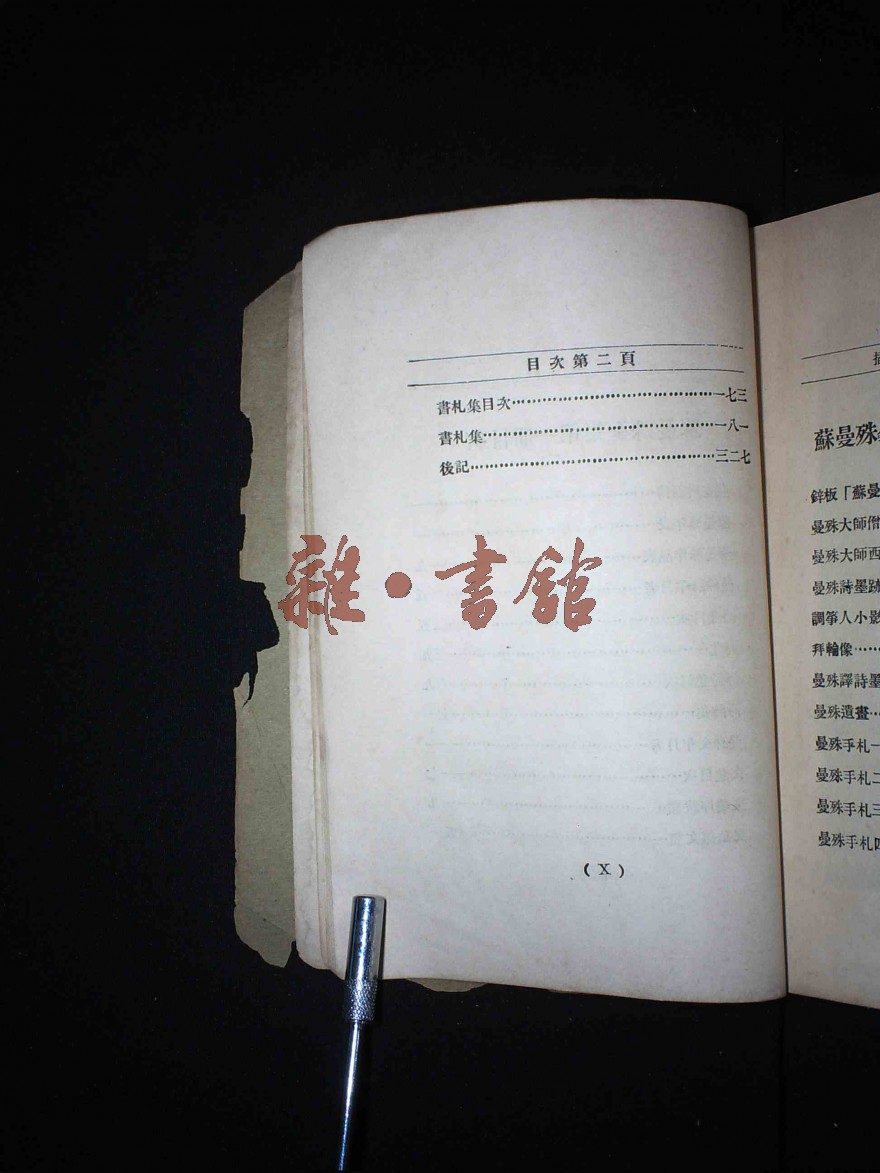 目次第二頁
書札集目次……………………………一七三
書札集……………………………一八一
後記……………………………三二七
雜·書館
(X)
蘇曼殊
鋅板「蘇曼
曼殊大師僧
曼殊大師西
曼殊詩墨跡
調箏人小影
拜輪像……
曼殊譯詩墨
曼殊遺畫…
曼殊手札一
曼殊手札二
曼殊手札三
曼殊手札四